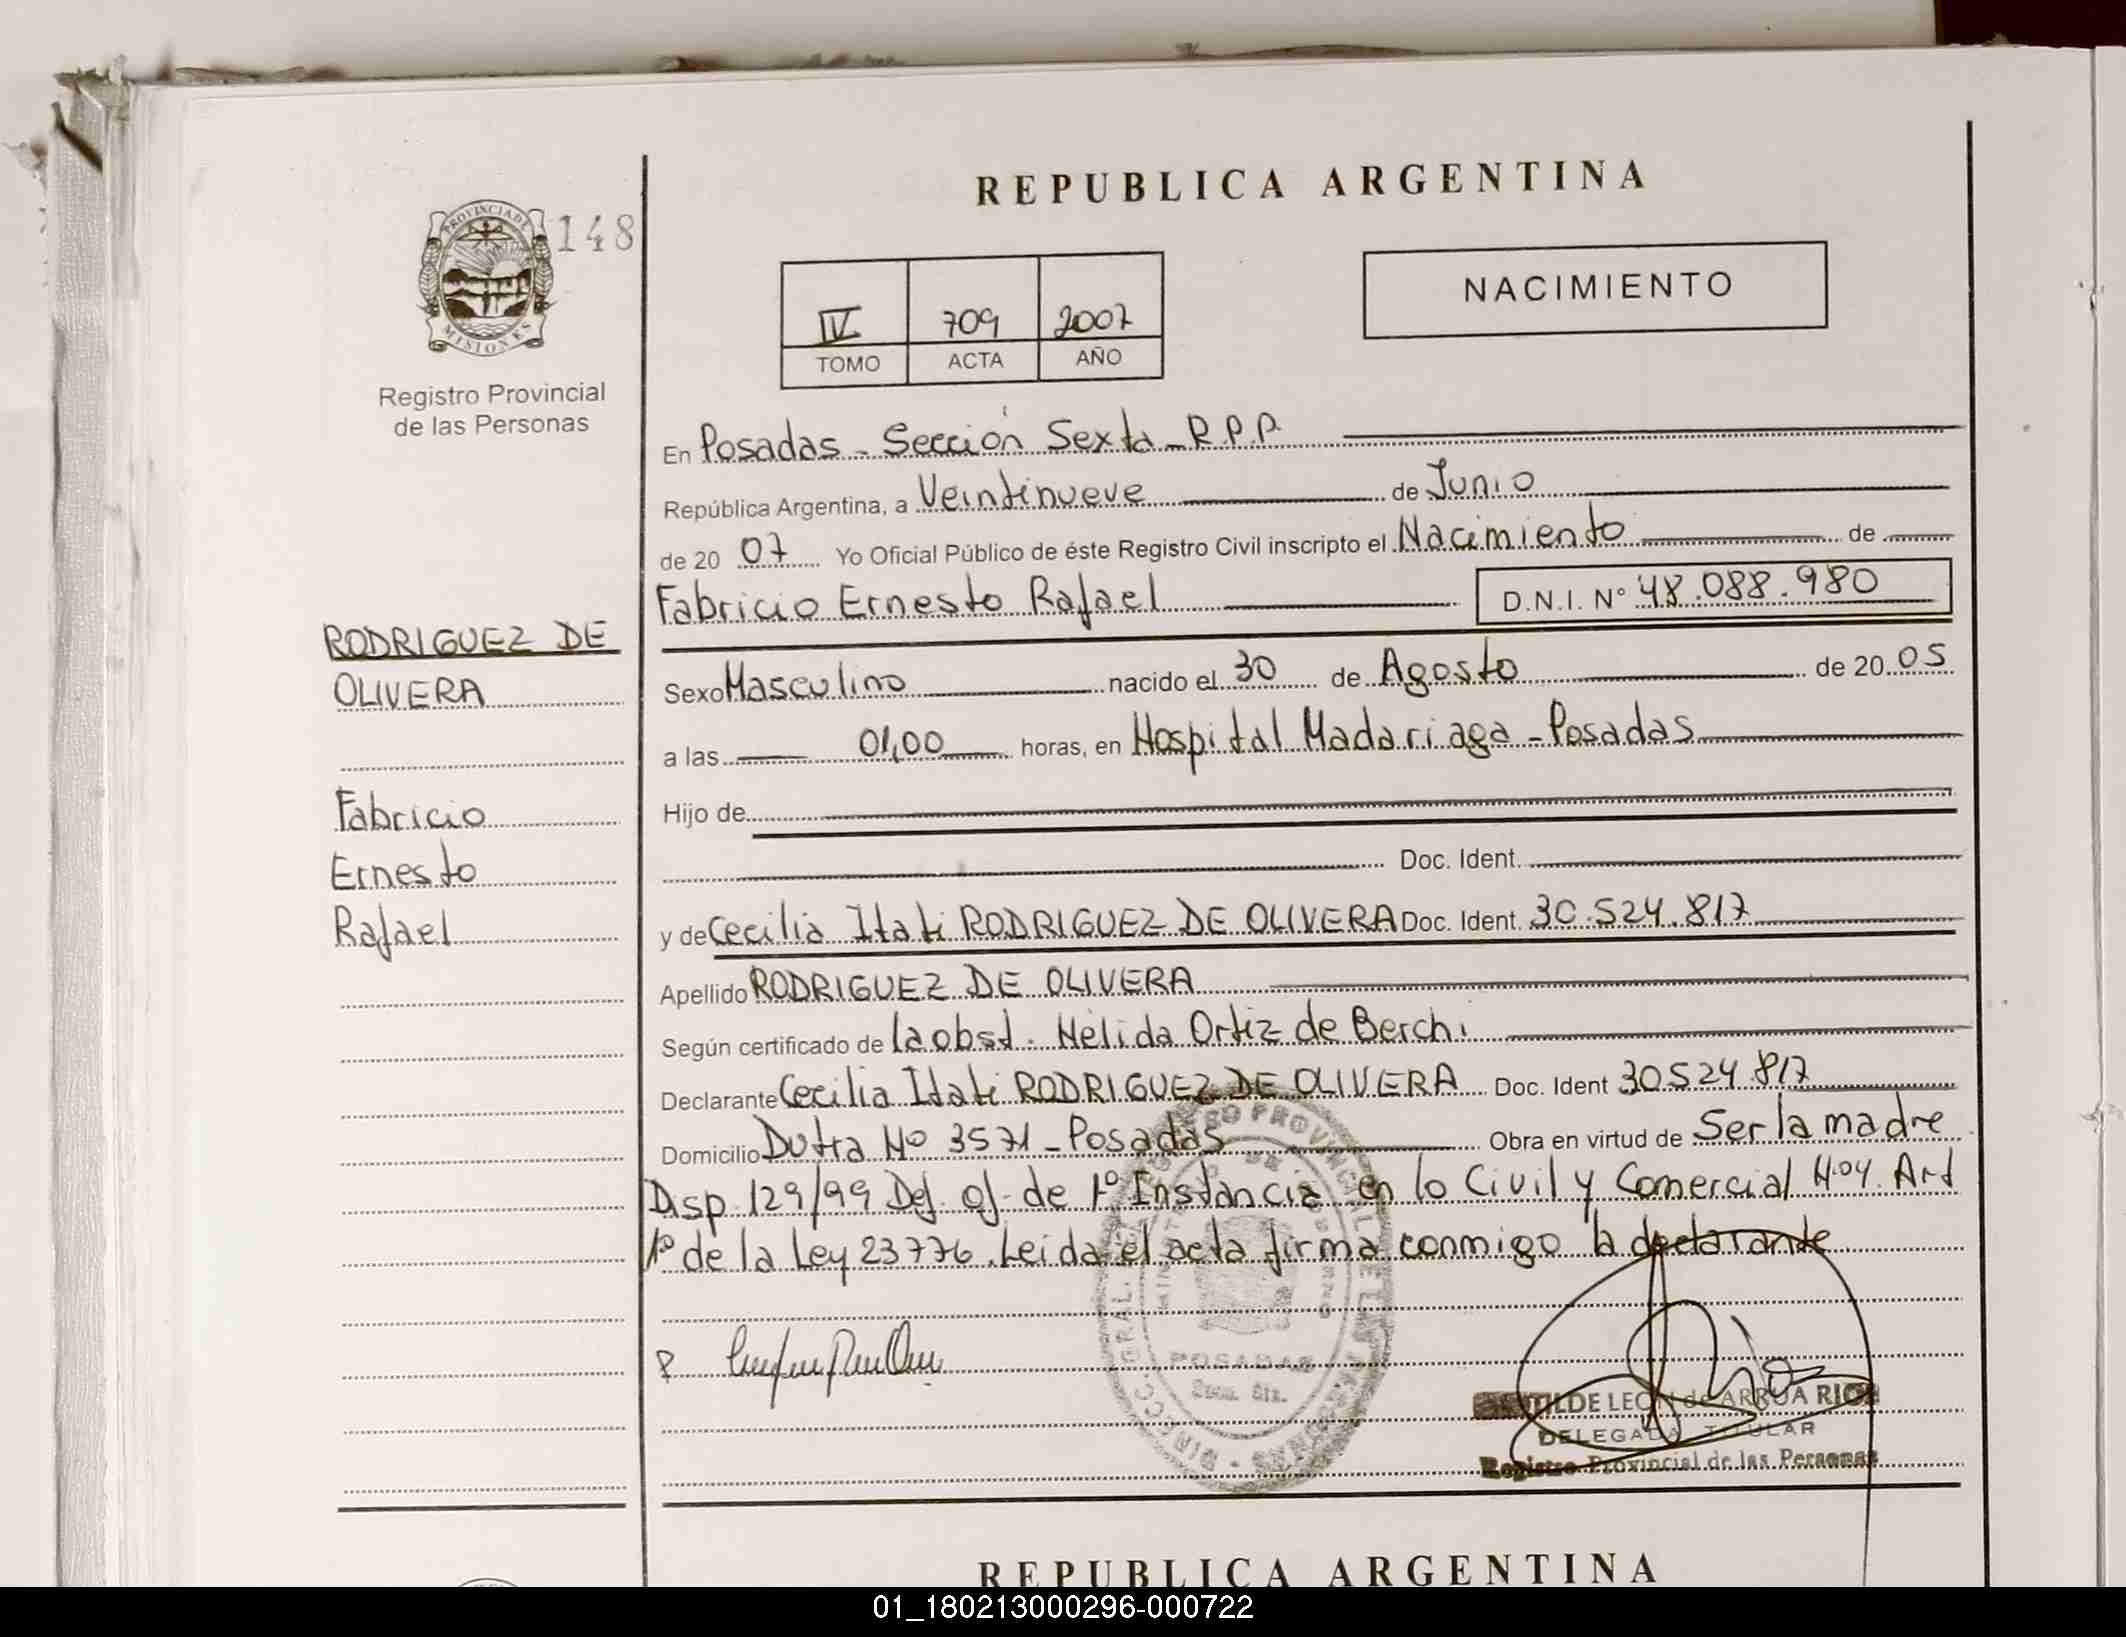 REPUBLICA ARGENTINA
PROVINCIA DE
MISIONES
148
Registro Provincial
de las Personas
IV 709 2007
TOMO ACTA AÑO
NACIMIENTO
RODRIGUEZ DE
OLIVERA
Fabricio
Ernesto
Rafael
En Posadas - Sección Sexta - R.P.P.
República Argentina, a Veintinueve de Junio
de 20 07 Yo Oficial Público de éste Registro Civil inscripto el Nacimiento de
Fabricio Ernesto Rafael D.N.I. N° 48.088.980
Sexo Masculino nacido el 30 de Agosto de 20 05
a las 01,00 horas, en Hospital Madariaga - Posadas
Hijo de
Doc. Ident.
y de Cecilia Itati RODRIGUEZ DE OLIVERA Doc. Ident. 30.524.817
Apellido RODRIGUEZ DE OLIVERA
Según certificado de la obst. Nélida Ortiz de Berchi
Declarante Cecilia Itati RODRIGUEZ DE OLIVERA Doc. Ident 30.524.817
Domicilio Dutra Nº 3571 - Posadas Obra en virtud de Ser la madre
Disp 129/99 Def. of. de 1º Instancia en lo Civil y Comercial Nº 04. Art
1º de la Ley 23776. Leida el acta firma conmigo la declarante
POSADAS
LEON de ARRUA RIOS
DELEGADA TITULAR
Registro Provincial de las Personas
REPUBLICA ARGENTINA
01_180213000296-000722